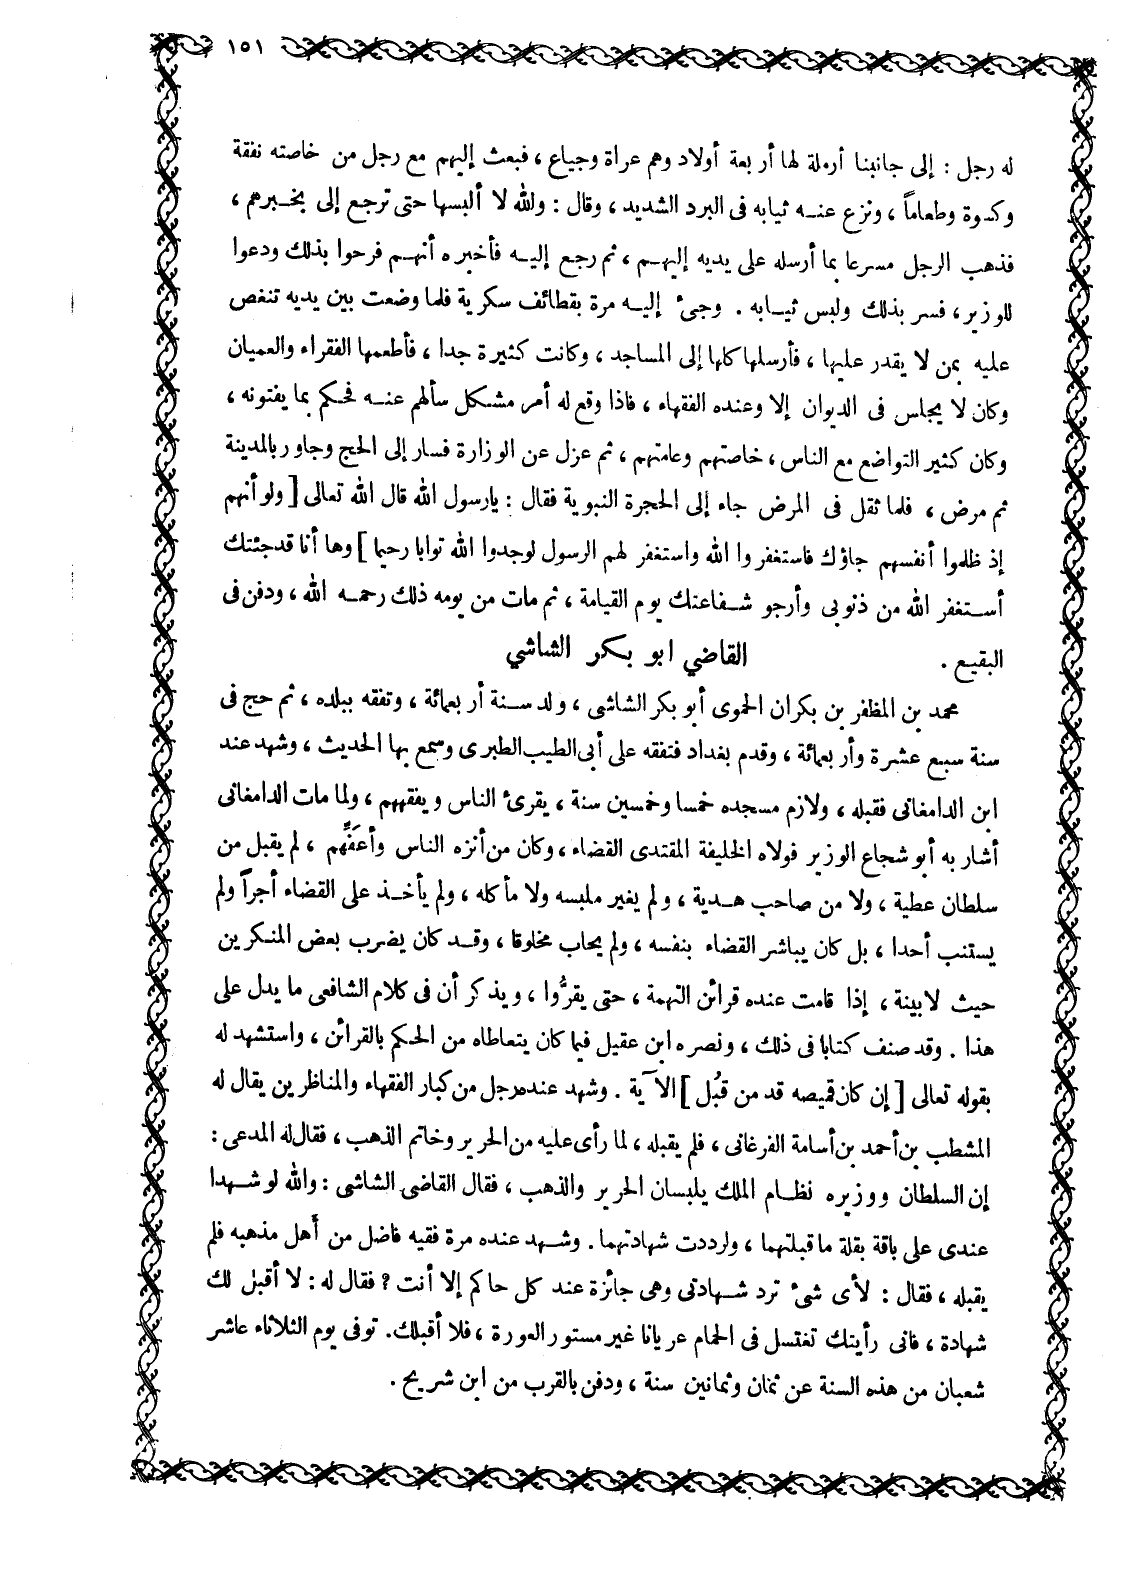 ١٥١
له رجل : إلى جانبنا أرملة لها أربعة أولاد وهم عراة وجياع ، فبعث إليهم مع رجل من خاصته نفقة
وكسوة وطعاماً ، ونزع عنه ثيابه فى البرد الشديد ، وقال : والله لا ألبسها حتى ترجع إلى بخبرهم ،
فذهب الرجل مسرعا بما أرسله على يديه إليهم ، ثم رجع إليه فأخبره أنهم فرحوا بذلك ودعوا
للوزير ، فسر بذلك ولبس ثيابه . وجىء إليه مرة بقطائف سكرية فلما وضعت بين يديه تنغص
عليه بمن لا يقدر عليها ، فأرسلها كلها إلى المساجد ، وكانت كثيرة جدا ، فأطعمها الفقراء والعميان
وكان لا يجلس فى الديوان إلا وعنده الفقهاء ، فاذا وقع له أمر مشكل سألهم عنه فحكم بما يفتونه ،
وكان كثير التواضع مع الناس ، خاصتهم وعامتهم ، ثم عزل عن الوزارة فسار إلى الحج وجاور بالمدينة
ثم مرض ، فلما ثقل فى المرض جاء إلى الحجرة النبوية فقال : يارسول الله قال الله تعالى [ ولو أنهم
إذ ظلموا أنفسهم جاؤك فاستغفروا الله واستغفر لهم الرسول لوجدوا الله توابا رحيما ] وها أنا قد جئتك
أستغفر الله من ذنوبى وأرجو شفاعتك يوم القيامة ، ثم مات من يومه ذلك رحمه الله ، ودفن فى
البقيع .
القاضي ابو بكر الشاشي
محمد بن المظفر بن بكران الحموى أبو بكر الشاشى ، ولد سنة أربعمائة ، وتفقه ببلده ، ثم حج فى
سنة سبع عشرة وأربعمائة ، وقدم بغداد فتفقه على أبى الطيب الطبرى وسمع بها الحديث ، وشهد عند
ابن الدامغانى فقبله ، ولازم مسجده خمسا وخمسين سنة ، يقرئ الناس ويفقههم ، ولما مات الدامغانى
أشار به أبو شجاع الوزير فولاه الخليفة المقتدى القضاء ، وكان من أنزه الناس وأعَفِّهم ، لم يقبل من
سلطان عطية ، ولا من صاحب هدية ، ولم يغير ملبسه ولا مأكله ، ولم يأخذ على القضاء أجراً ولم
يستنب أحدا ، بل كان يباشر القضاء بنفسه ، ولم يحاب مخلوقا ، وقد كان يضرب بعض المنكرين
حيث لا بينة ، إذا قامت عنده قرائن التهمة ، حتى يقرُّوا ، ويذكر أن فى كلام الشافعى ما يدل على
هذا . وقد صنف كتابا فى ذلك ، ونصره ابن عقيل فيما كان يتعاطاه من الحكم بالقرائن ، واستشهد له
بقوله تعالى [ إن كان قميصه قد من قبُل ] الآية . وشهد عنده رجل من كبار الفقهاء والمناظرين يقال له
المشطب بن أحمد بن أسامة الفرغانى ، فلم يقبله ، لما رأى عليه من الحرير وخاتم الذهب ، فقال له المدعى :
إن السلطان ووزيره نظام الملك يلبسان الحرير والذهب ، فقال القاضى الشاشى : والله لو شهدا
عندى على باقة بقلة ما قبلتهما ، ولرددت شهادتهما . وشهد عنده مرة فقيه فاضل من أهل مذهبه فلم
يقبله ، فقال : لأى شىء ترد شهادتى وهى جائزة عند كل حاكم إلا أنت ؟ فقال له : لا أقبل لك
شهادة ، فانى رأيتك تغتسل فى الحمام عريانا غير مستور العورة ، فلا أقبلك . توفى يوم الثلاثاء عاشر
شعبان من هذه السنة عن ثمان وثمانين سنة ، ودفن بالقرب من ابن شريح .